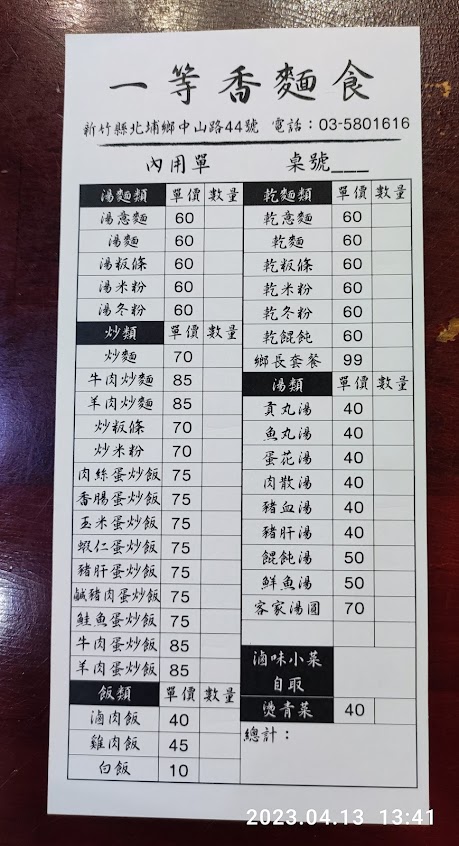 一等香麵食
新竹縣北埔鄉中山路44號 電話：03-5801616
內用單 桌號___
湯麵類 單價 數量
湯意麵 60
湯麵 60
湯粄條 60
湯米粉 60
湯冬粉 60
炒類 單價 數量
炒麵 70
牛肉炒麵 85
羊肉炒麵 85
炒粄條 70
炒米粉 70
肉絲蛋炒飯 75
香腸蛋炒飯 75
玉米蛋炒飯 75
蝦仁蛋炒飯 75
豬肝蛋炒飯 75
鹹豬肉蛋炒飯 75
鮭魚蛋炒飯 75
牛肉蛋炒飯 85
羊肉蛋炒飯 85
飯類 單價 數量
滷肉飯 40
雞肉飯 45
白飯 10
乾麵類 單價 數量
乾意麵 60
乾麵 60
乾粄條 60
乾米粉 60
乾冬粉 60
乾餛飩 60
鄉長套餐 99
湯類 單價 數量
貢丸湯 40
魚丸湯 40
蛋花湯 40
肉散湯 40
豬血湯 40
豬肝湯 40
餛飩湯 50
鮮魚湯 50
客家湯圓 70
滷味小菜
自取
燙青菜 40
總計：
2023.04.13 13:41